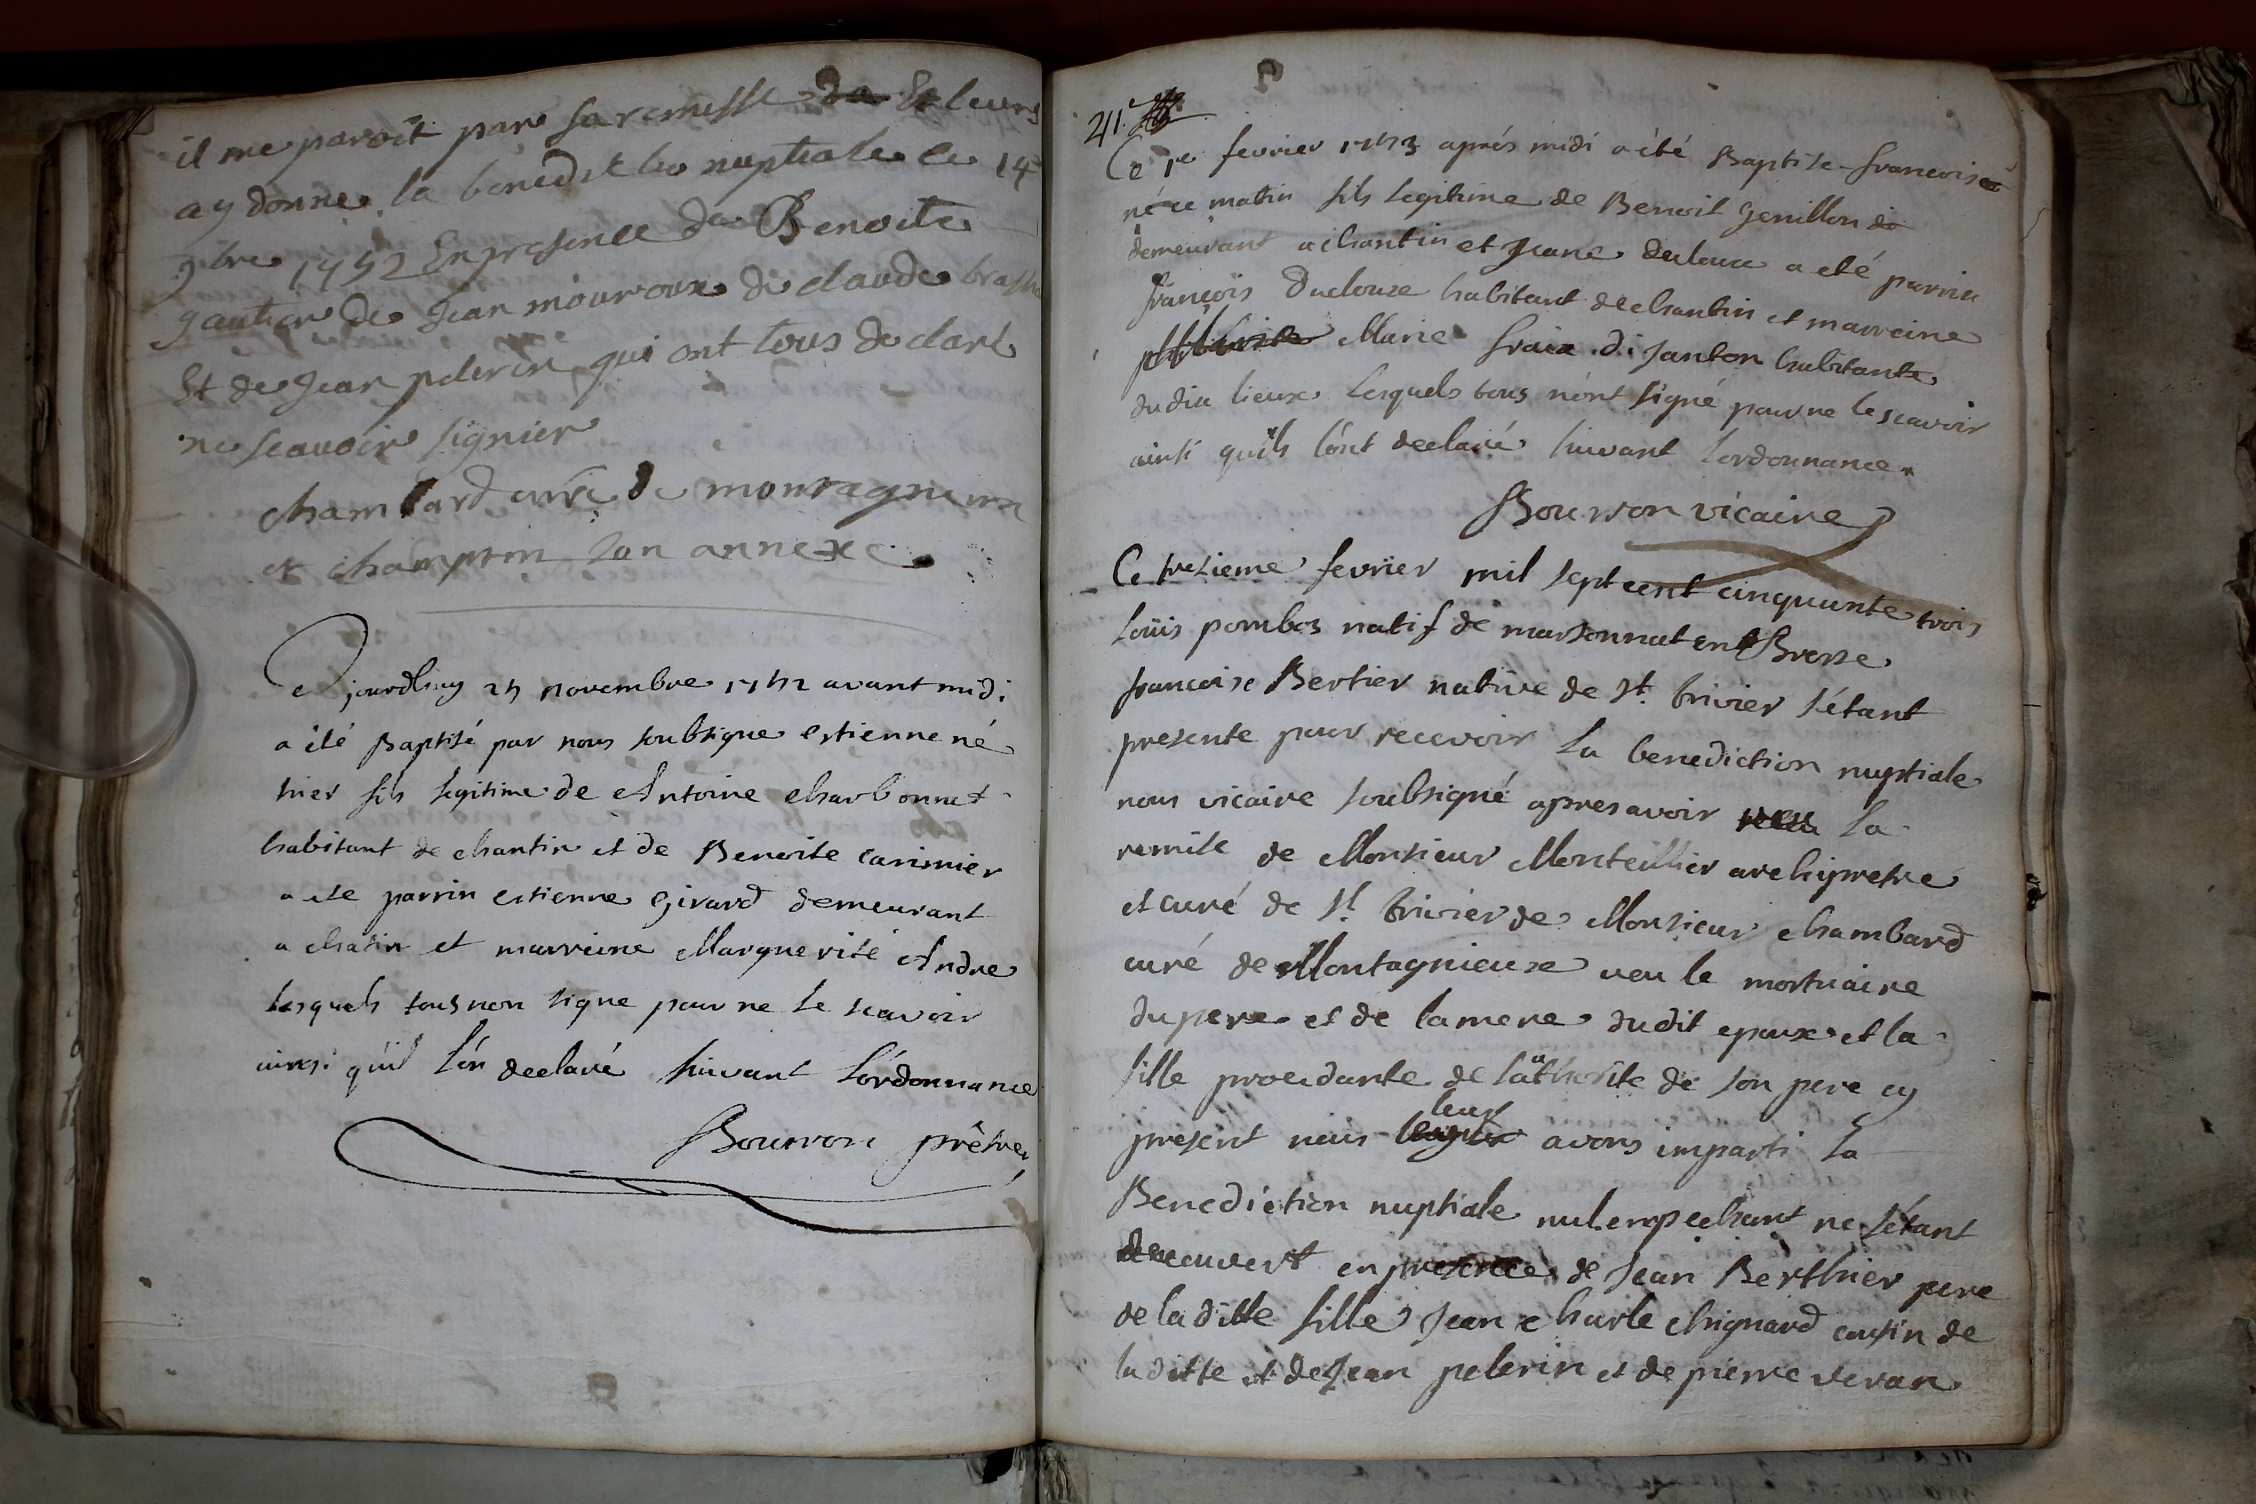 il me paroit par sa remisse Et leurs
ay donne la benediction nuptiale ce 14
9bre 1752 En presence de Benoite
gautier de Jean mouroux de claude
Et de Jean pelerin qui ont tous declaré
ne scavoir signier
chambard curé de montagnieux
et champtin son annexe
Ce jourdhuy 25 novembre 1752 avant midi
a été Baptisé par nous soubsigne estienne né
hier fils legitime de Antoine charbonnet
habitant de chantin et de Benoite carimier
a ete parrin estienne Girard demeurant
a chatin et marreine Marguerite Andre
lesquels tous non signe pour ne le scavoir
ainsi quil l'on declaré suivant l'ordonnance
Bourron prêtre
41.e
Ce 1er fevrier 1753 aprés midi a été Baptise francois
né ce matin fils legitime de Benoit Genillon
demeurant a chantin et Jeane ducloux a eté parrin
françois Duclouxe habitant de chantin et marreine
Marie fraix di Janton habitante
du dit lieux lesquels tous n'ont signé pour ne le scavoir
ainsi quils l'ont declaré suivant l'ordonnance
Bourron vicaire
Ce tresieme fevrier mil sept cent cinquante trois
Loüis pombos natif de marsonnat en Bresse
francoise Bertier native de St. trivier s'étant
presente pour recevoir la benediction nuptiale
nous vicaire soubsigné apres avoir veu la
remise de Monsieur Monteillier archipretre
et curé de St. trivier de Monsieur chambard
curé de Montagnieuxe veu le mortuaire
du pere et de la mere dudit epoux et la
fille procedante de l'authorite de son pere cy
present nous leur avons imparti la
Benediction nuptiale nul empechant ne s'étant
decouvert en presence de Jean Berthier pere
de la ditte fille Jean charle chignard cousin de
la ditte et de Jean pelerin et de pierre veran